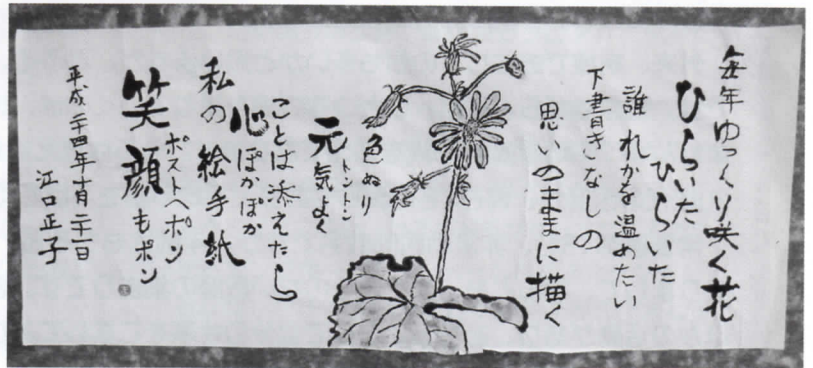 毎年ゆっくり咲く花
ひらいた
ひらいた
誰れかを温めたい
下書きなしの
思いのままに描く
色ぬり
トントン
元気よく
ことば添えたら
心ぽかぽか
私の絵手紙
ポストへポン
笑顔もポン
平成二十四年十月二十一日
江口正子